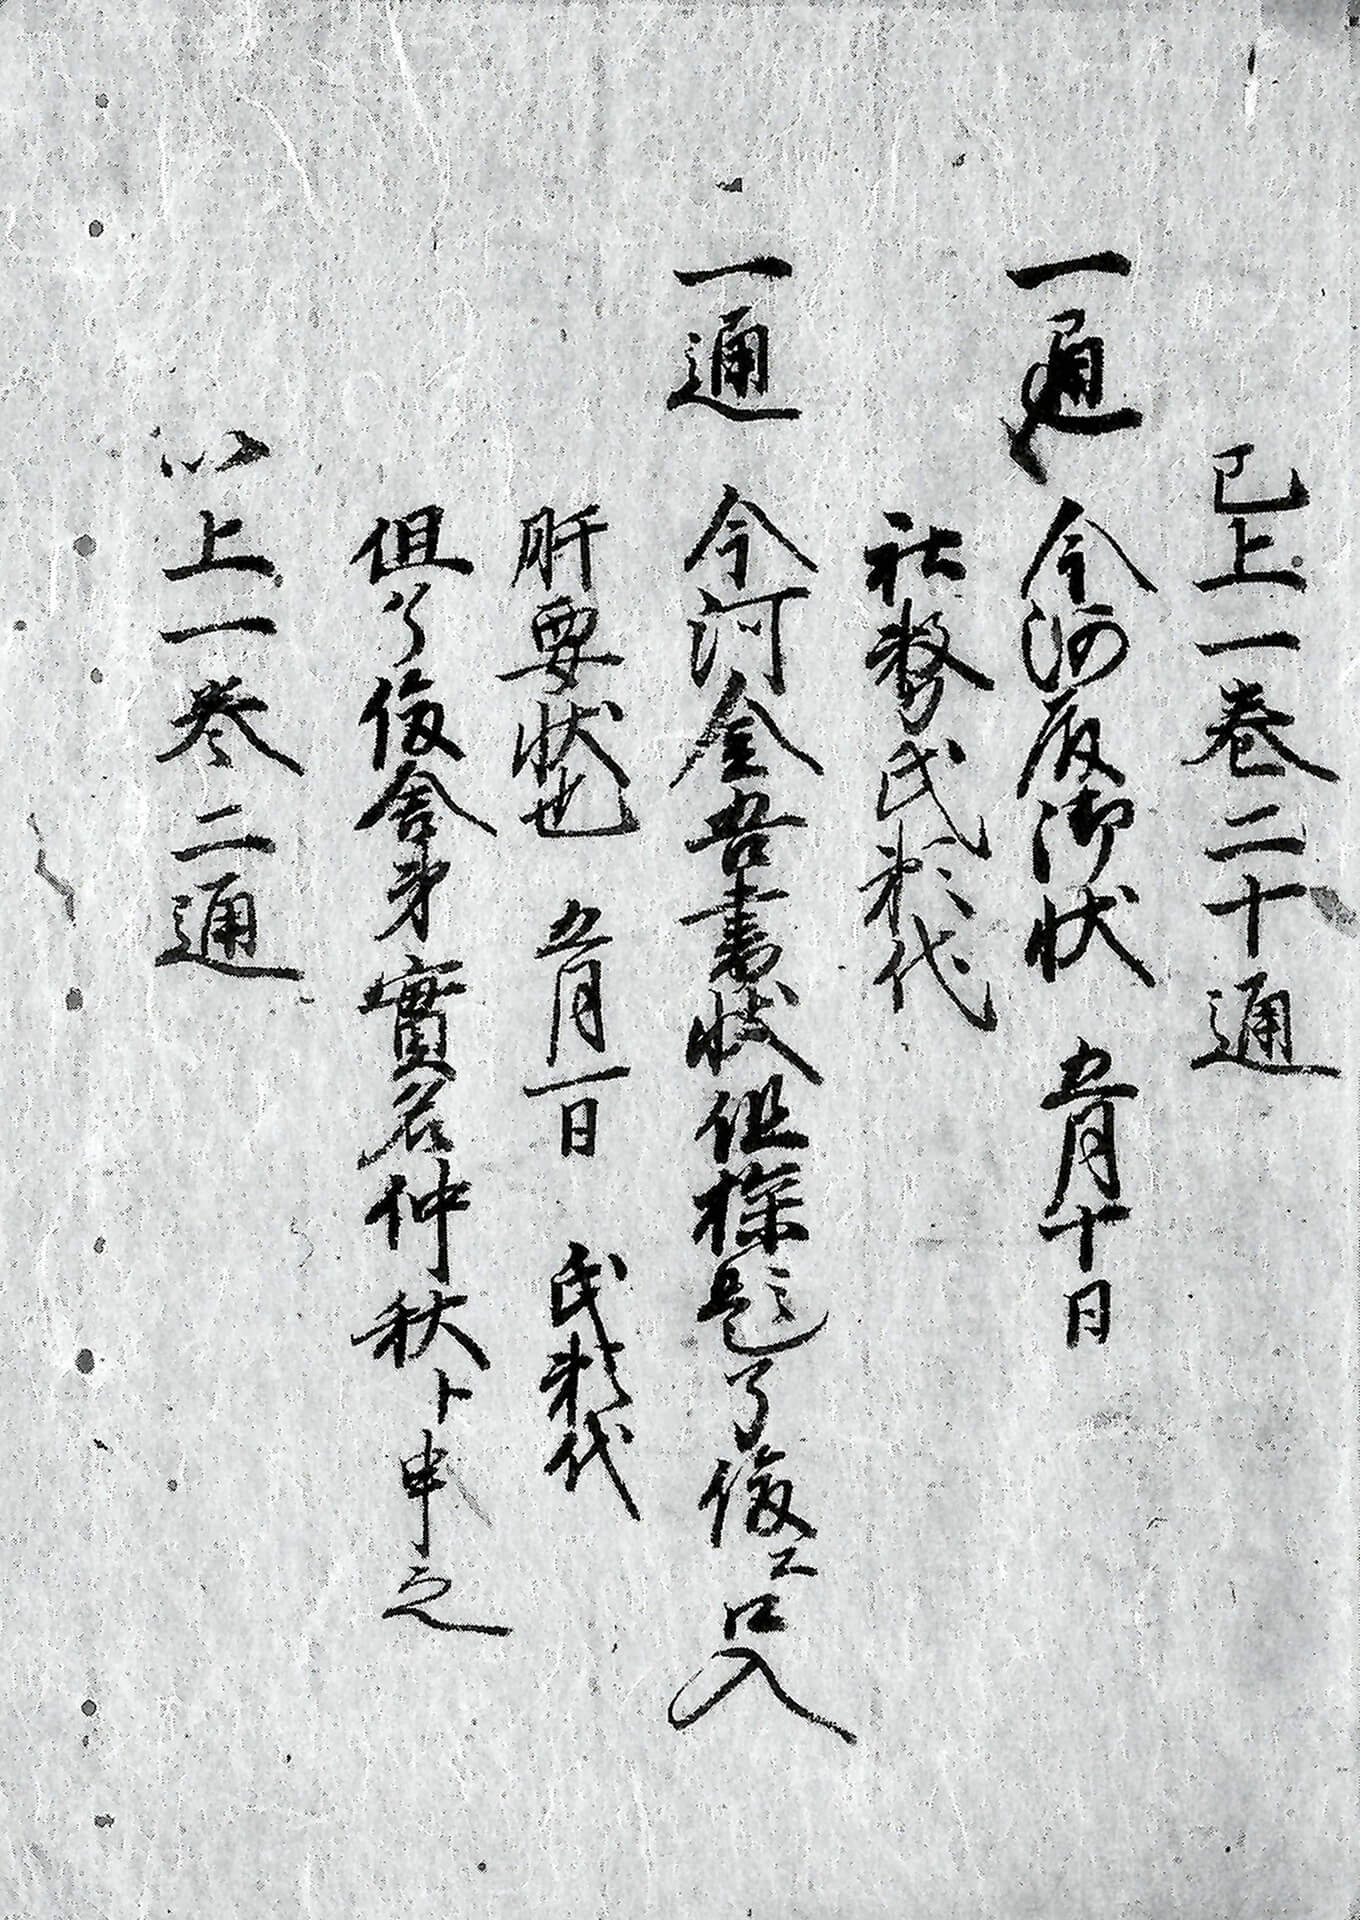 已上一巻二十通
一通 今河殿御状 五月十日
社務氏数代
一通 今河金吾書状但探題了俊エ口入
肝要状也 五月一日 氏数代
但了俊舎弟實名仲秋ト申之
以上一巻二通